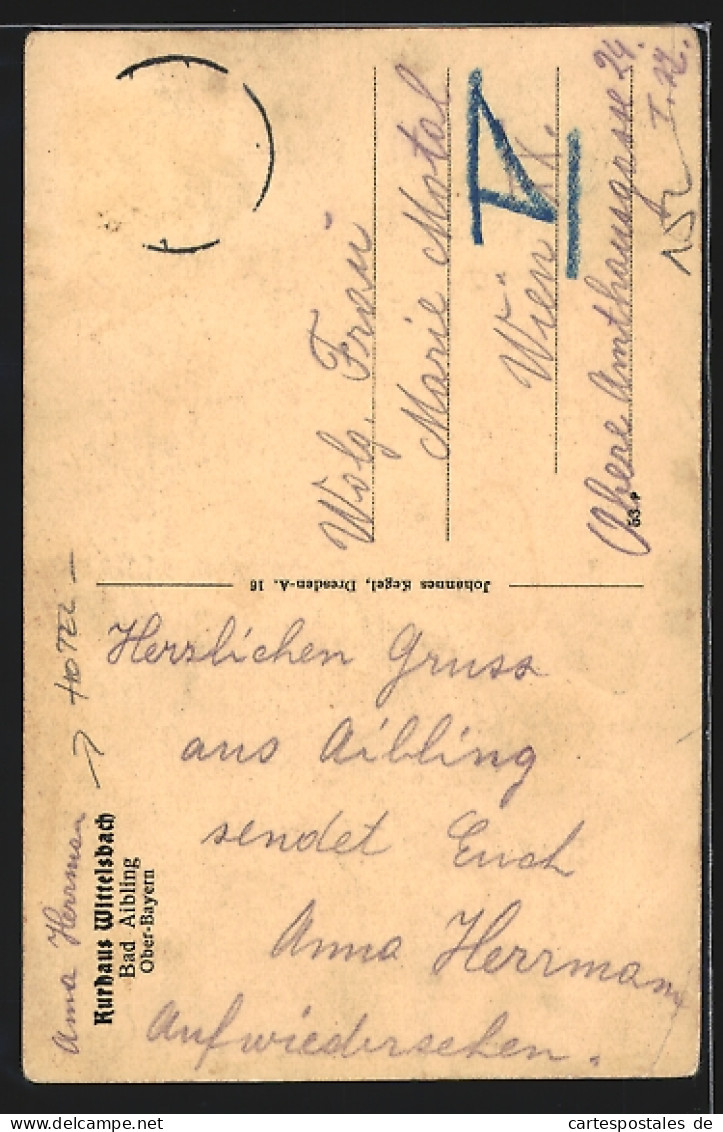 Anna Herrman → HOTEL —
Kurhaus Wittelsbach
Bad Aibling
Ober-Bayern
Herzlichen Gruss
aus Aibling
sendet Euch
Anna Herrmann
Aufwiedersehen.
Johannes Kegel, Dresden-A. 16
Wolg. Frau
Marie Motal
Wien
Obere Amthausgasse 24.
53 P
cartespostales.de